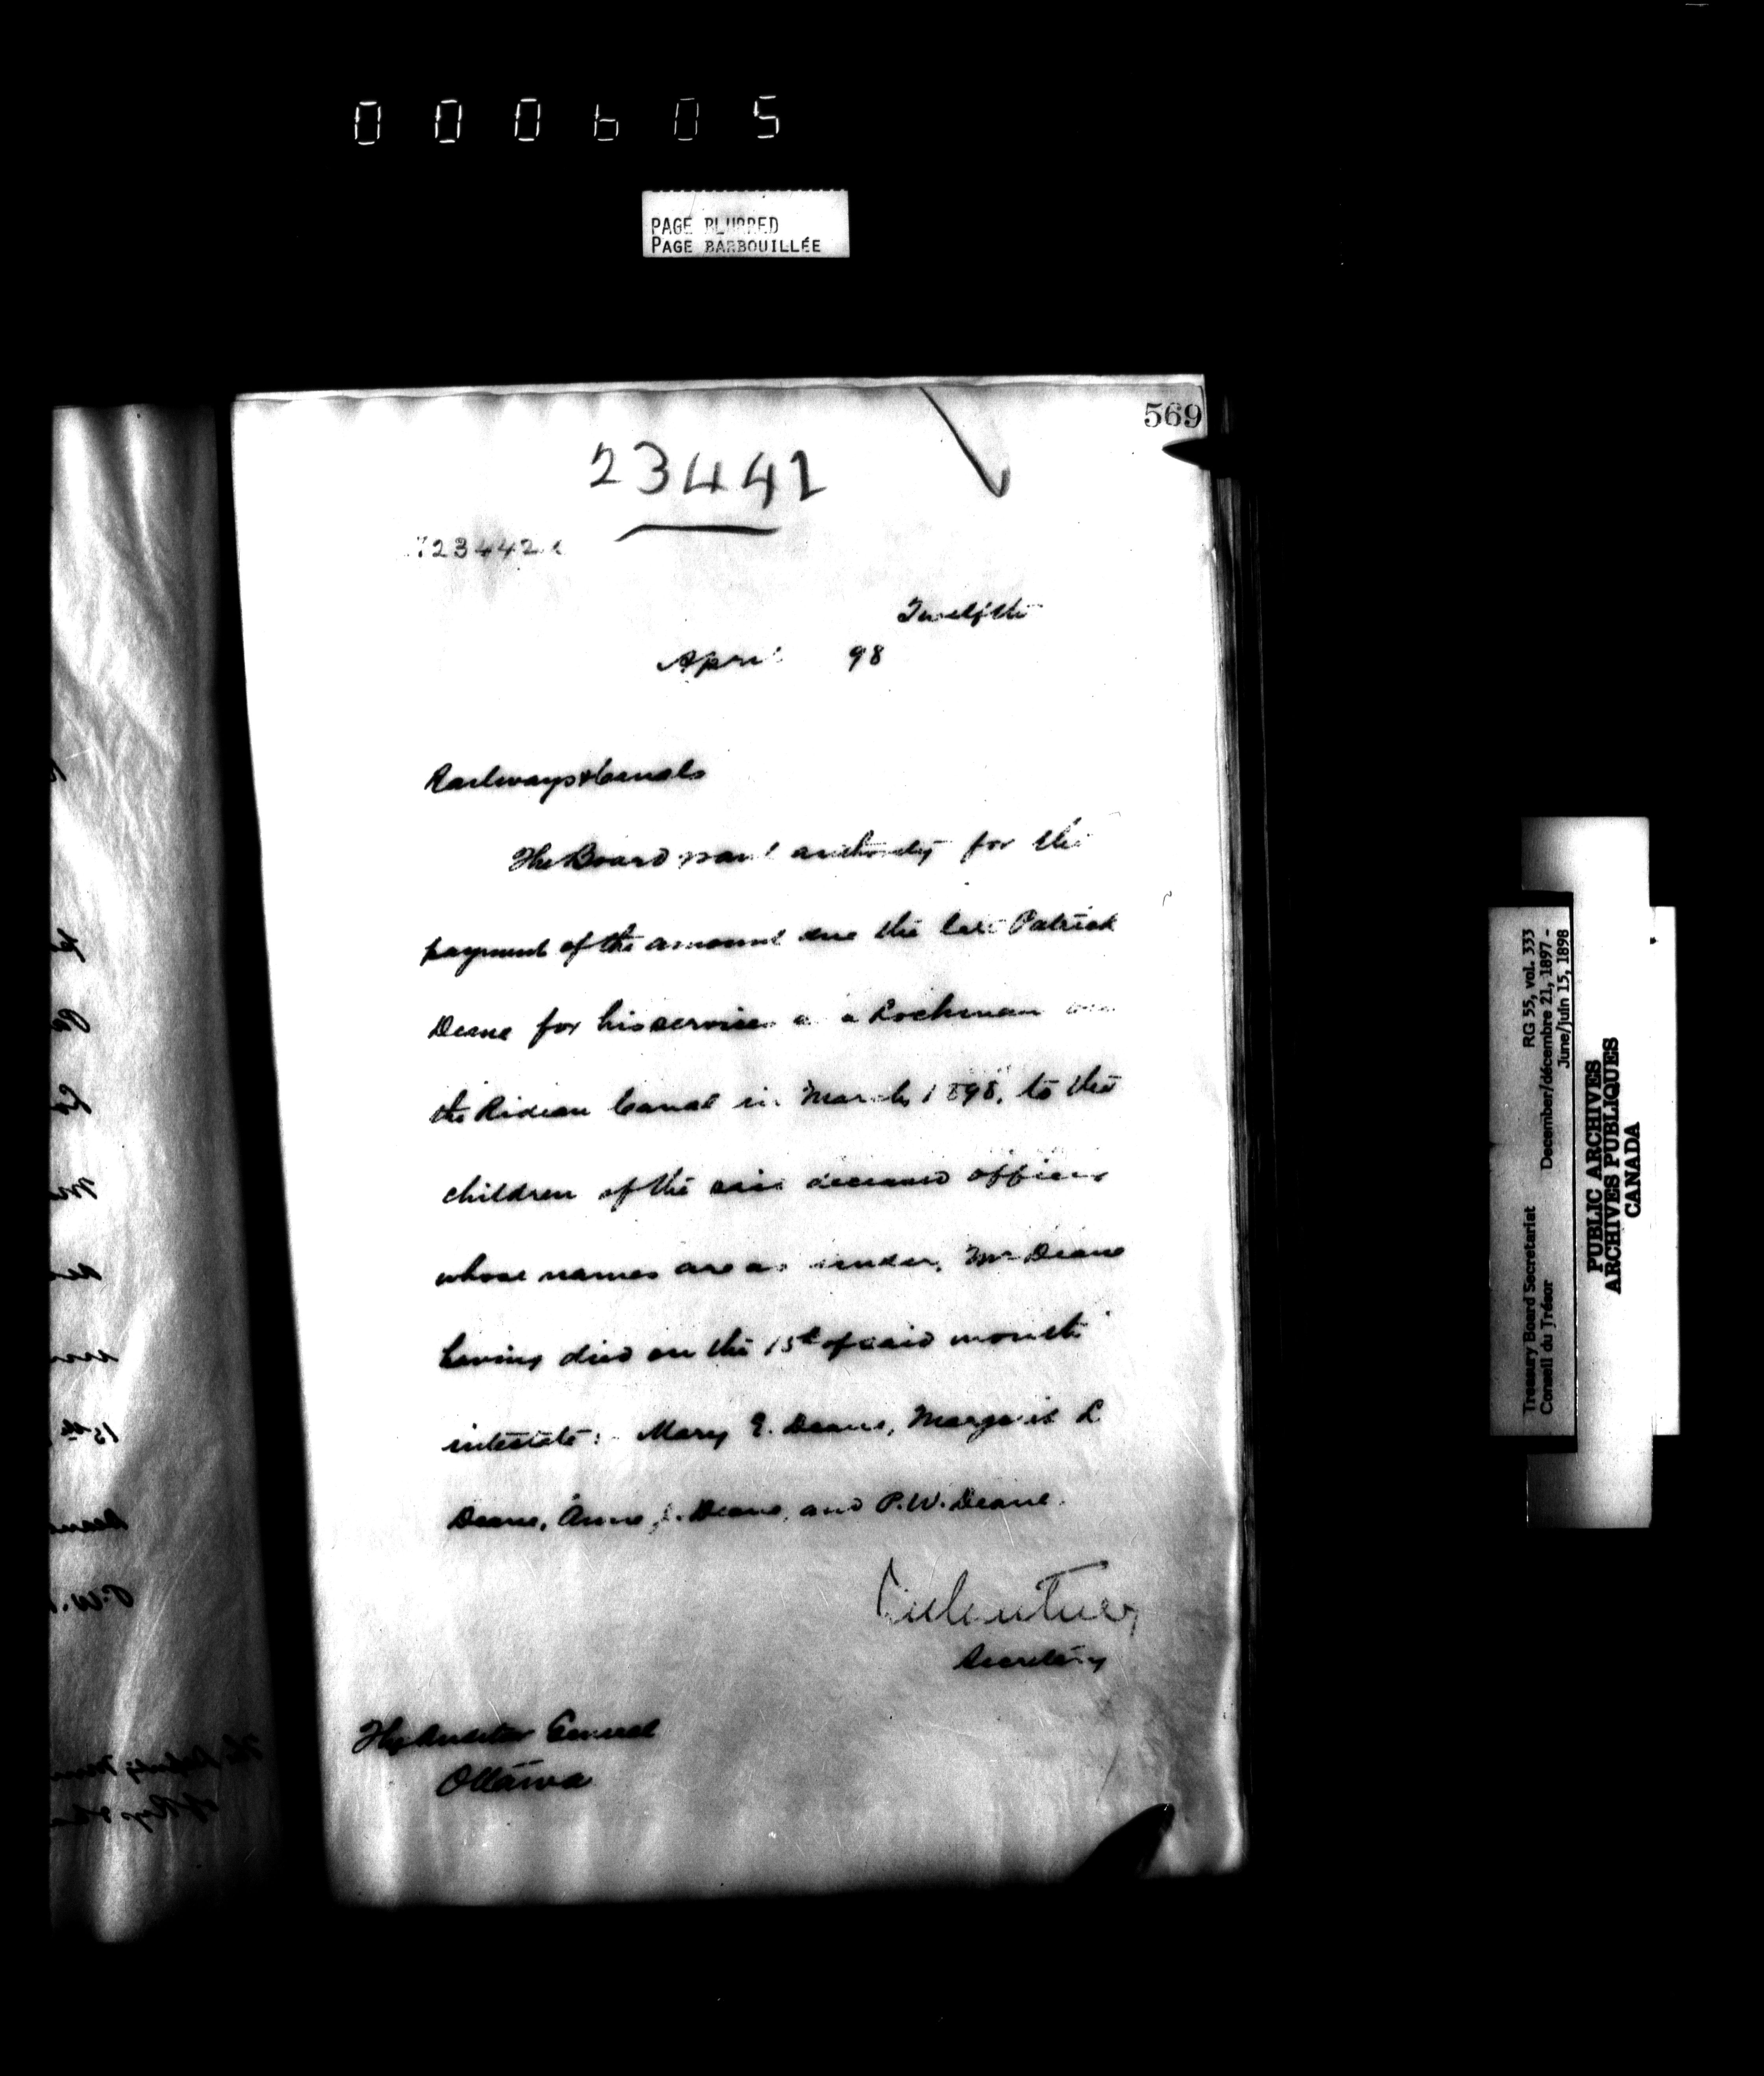 000605
PAGE BLURRED
PAGE BARBOUILLÉE
569
23442
23442
Twelfth
April 98
Railways & Canals
The Board grant authority for the
payment of the amount due the late Patrick
Deane for his services as a Lockman on
the Rideau Canal in March, 1898, to the
children of the said deceased officer
whose names are as under, Mr Deane
having died on the 15th of said month
intestate: Mary E. Deane, Margaret L
Deane, Anne J. Deane, and P.W. Deane.
Secretary
The Auditor General
Ottawa
15th
P.W.
The Deputy
of Rys &
Treasury Board Secretariat RG 55, vol. 333
Conseil du Trésor December/décembre 21, 1897 -
June/juin 15, 1898
PUBLIC ARCHIVES
ARCHIVES PUBLIQUES
CANADA